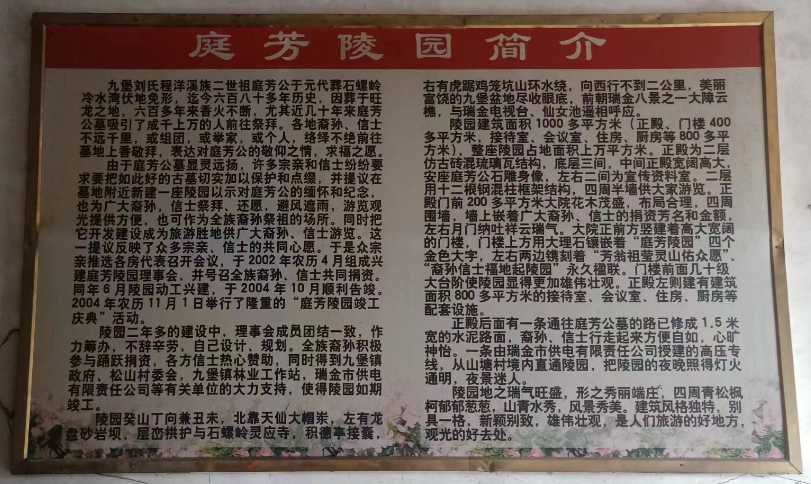 庭芳陵园简介
九堡刘氏程洋溪族二世祖庭芳公于元代葬石螺岭
冷水湾伏地兔形，迄今六百八十多年历史，因葬于旺
龙之地，六百多年来香火不断，尤其近几十年来庭芳
公墓吸引了成千上万的人前往祭拜。各地裔孙、信士
不远千里，或组团，或举家，或个人，络绎不绝前往
墓地上香敬拜，表达对庭芳公的敬仰之情，求福之愿。
由于庭芳公墓显灵远扬，许多宗亲和信士纷纷要
求要把如此好的古墓切实加以保护和点缀，并提议在
墓地附近新建一座陵园以示对庭芳公的缅怀和纪念，
也为广大裔孙，信士祭拜、还愿，避风遮雨，游览观
光提供方便，也可作为全族裔孙祭祖的场所。同时把
它开发建设成为旅游胜地供广大裔孙、信士游览。这
一提议反映了众多宗亲、信士的共同心愿。于是众宗
亲推选各房代表召开会议，于2002年农历4月组成兴
建庭芳陵园理事会，并号召全族裔孙、信士共同捐资。
同年6月陵园动工兴建，于2004年10月顺利告竣。
2004年农历11月1日举行了隆重的“庭芳陵园竣工
庆典”活动。
陵园二年多的建设中，理事会成员团结一致，作
力筹办，不辞辛劳，自己设计、规划。全族裔孙积极
参与踊跃捐资，各方信士热心赞助，同时得到九堡镇
政府、松山村委会，九堡镇林业工作站，瑞金市供电
有限责任公司等有关单位的大力支持，使得陵园如期
竣工。
陵园癸山丁向兼丑未，北靠天仙大帽岽，左有龙
盘砂岩坝，层峦拱护与石螺岭灵应寺，积德亭接囊，
右有虎踞鸡笼坑山环水绕，向西行不到二公里，美丽
富饶的九堡盆地尽收眼底，前朝瑞金八景之一大障云
樵，与瑞金电视台、仙女池遥相呼应。
陵园建筑面积1000多平方米（正殿、门楼400
多平方米，接待室、会议室、住房、厨房等800多平
方米），整座陵园占地面积上万平方米。正殿为二层
仿古砖混琉璃瓦结构，底层三间，中间正殿宽阔高大，
安座庭芳公石雕身像，左右二间为宣传资料室。二层
用十二根钢混柱框架结构，四周半墙供大家游览。正
殿门前200多平方米大院花木茂盛，布局合理，四周
围墙，墙上嵌着广大裔孙、信士的捐资芳名和金额，
左右月门纳吐祥云瑞气。大院正前方竖建着高大宽阔
的门楼，门楼上方用大理石镶嵌着“庭芳陵园”四个
金色大字，左右两边镌刻着“芳翁祖莹灵山佑众愿”、
“裔孙信士福地起陵园”永久楹联。门楼前面几十级
大台阶使陵园显得更加雄伟壮观。正殿左则建有建筑
面积800多平方米的接待室、会议室、住房、厨房等
配套设施。
正殿后面有一条通往庭芳公墓的路已修成1.5米
宽的水泥路面，裔孙、信士行走起来方便自如，心旷
神怡。一条由瑞金市供电有限责任公司授建的高压专
线，从山塘村境内直通陵园，把陵园的夜晚照得灯火
通明，夜景迷人。
陵园地之瑞气旺盛，形之秀丽端庄，四周青松枫
柯郁郁葱葱，山青水秀，风景秀美。建筑风格独特，别
具一格，新颖别致，雄伟壮观，是人们旅游的好地方，
观光的好去处。